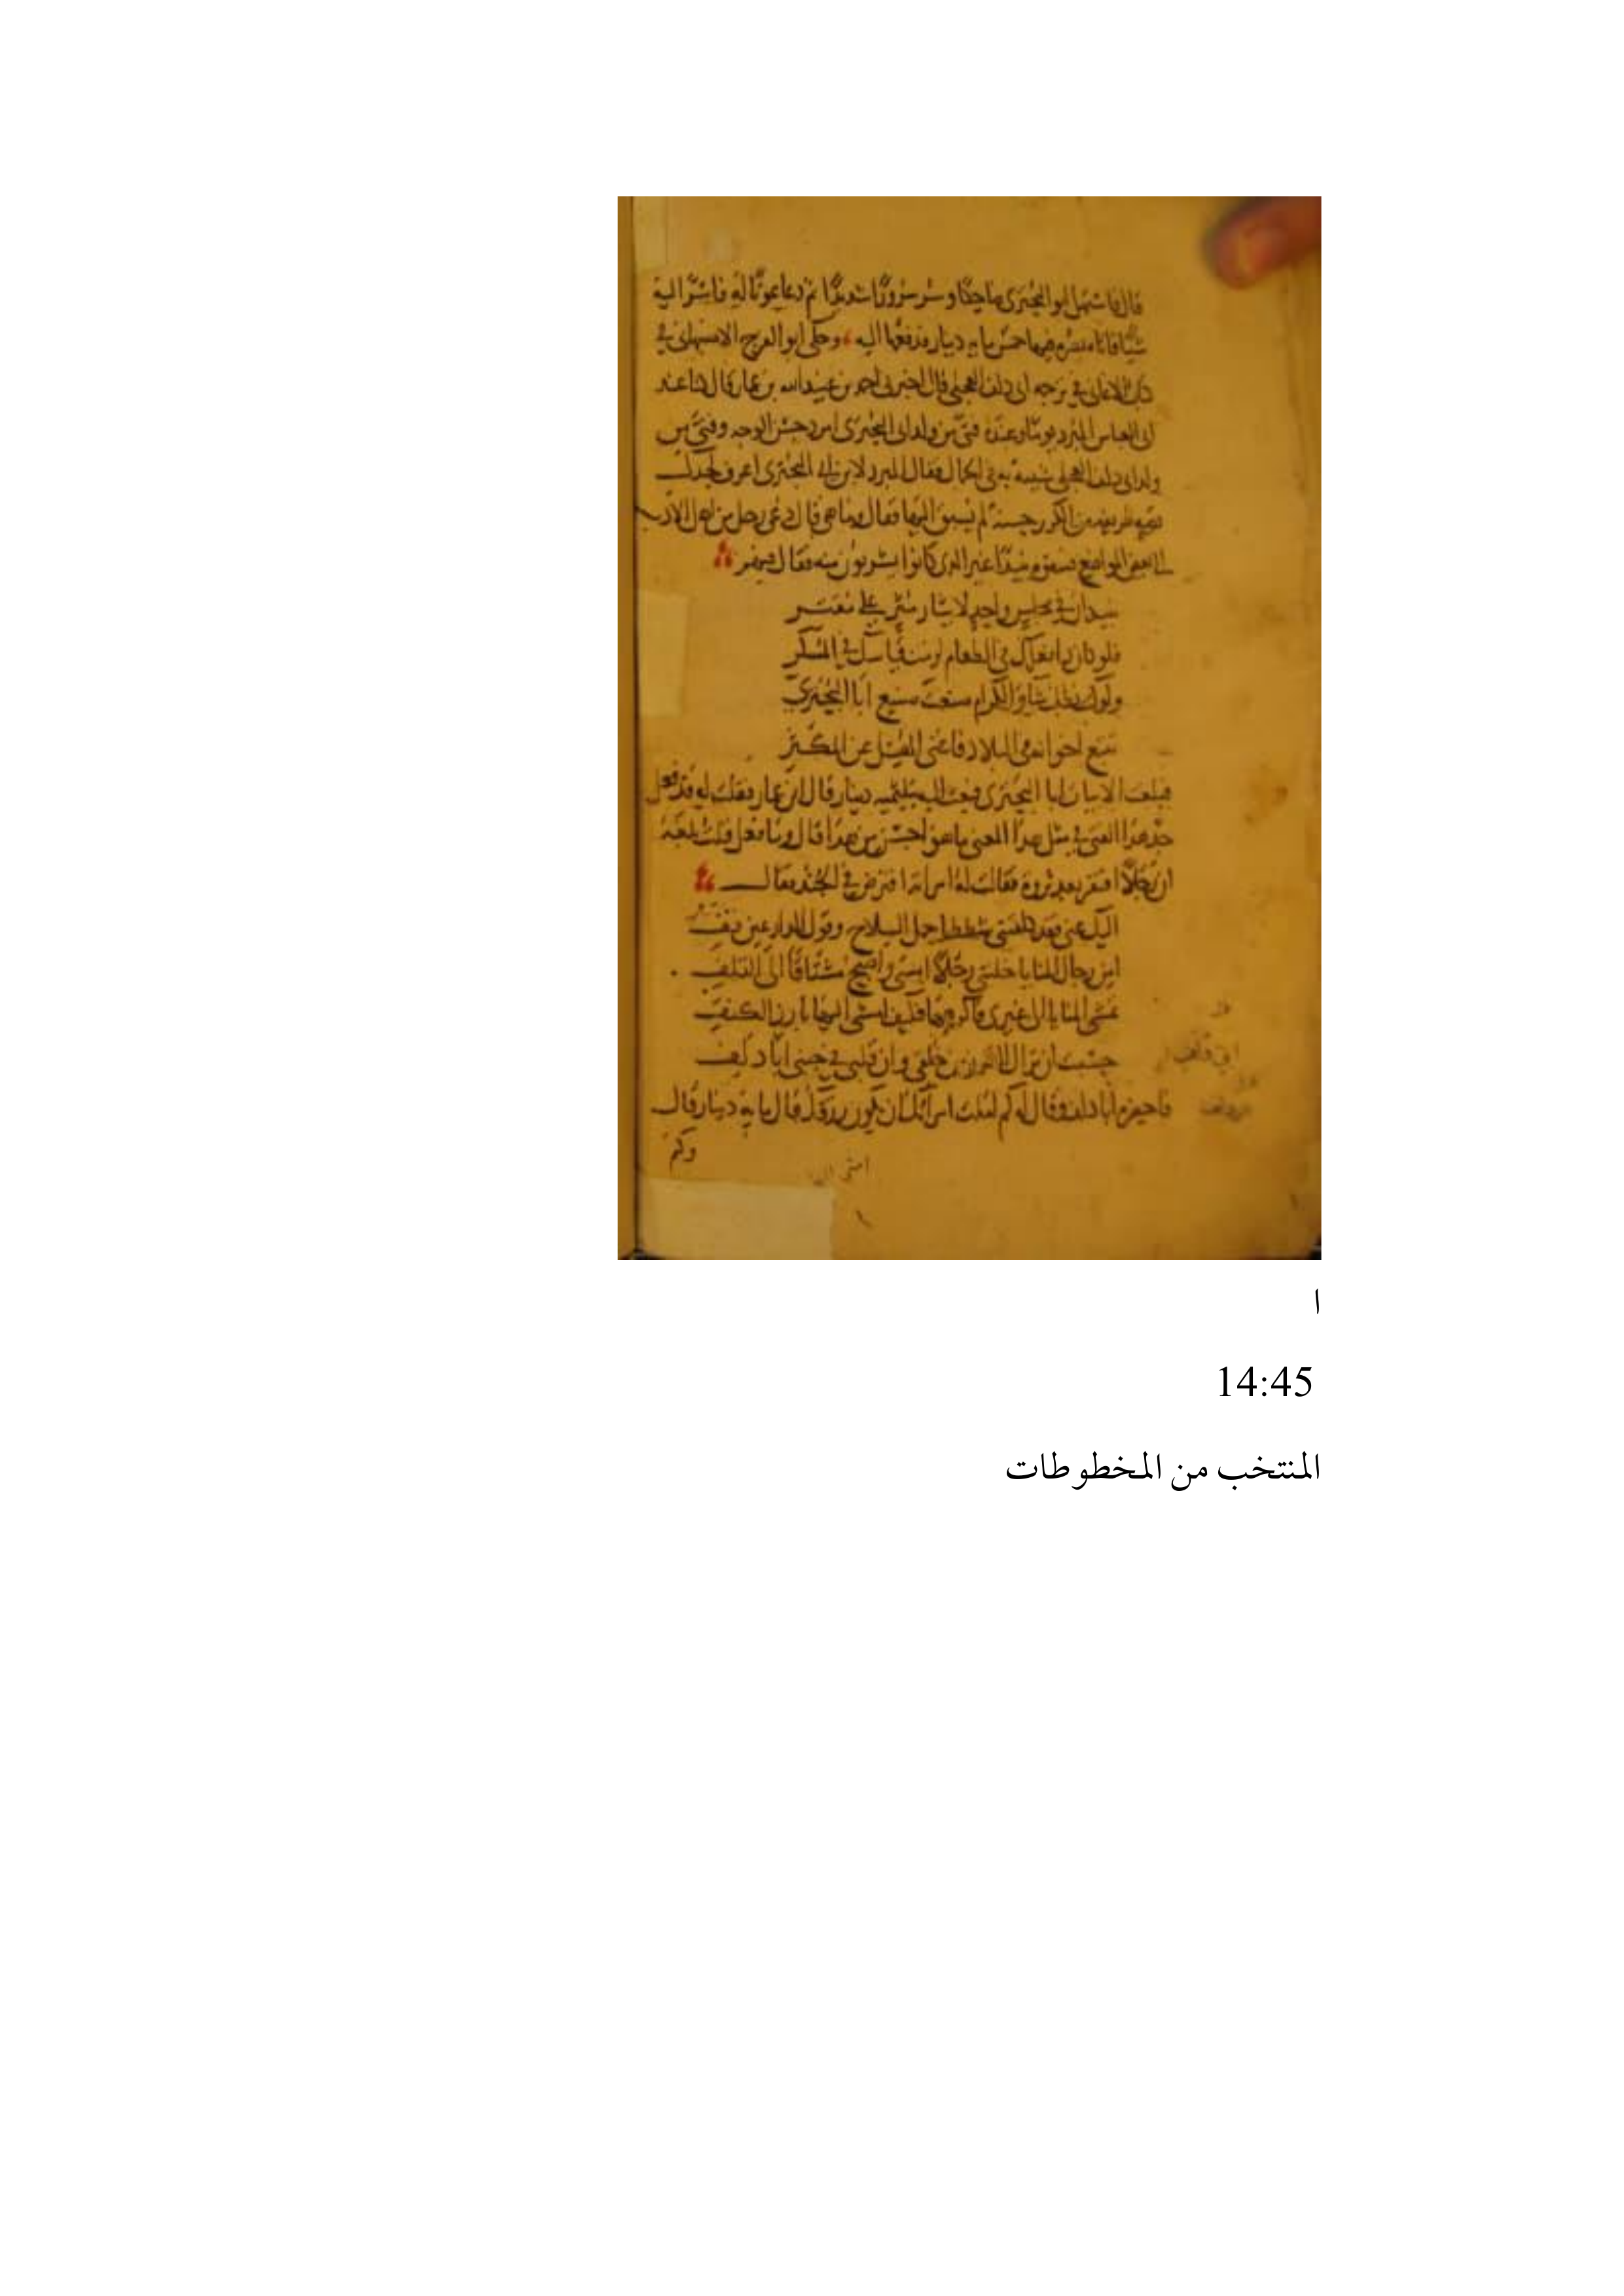 قال فاستهل ابو البختري ضاحكا وسر سرورا شديدا ثم دعا عونا له فاسر اليه
شيا فاتاه بصرة فيها خمس مايه دينار فدفعها اليه وحكى ابو الفرج الاصبهاني في
كتاب الاغاني في ترجمه ابي دلف العجلي قال اخبرني احمد بن عبيد الله بن عمار قال كنا عند
ابي العباس المبرد يوما وعنده فتى من ولد ابي البختري امرد حسن الوجه وفتى من
ولد ابي دلف العجلي شبيه به في الجمال فقال المبرد لابن ابي البختري اعرف لجدك
قصه ظريفه من الكرم حسنة لم يسبق اليها فقال وما هي قال دعي رجل من اهل الادب
الى بعض المواضع فسقوه نبيذا غير الذي كانوا يشربون منه فقال فيهم
نبيذان في مجلس واحد لايثار مثر على مقتر
فلو كان ذا فعلك في الطعام لزمت قياسك في المسكر
ولو كنت تطلب شاو الكرام صنعت صنيع ابا البختري
تتبع اخوانه في البلاد فاغنى المقل عن المكثر
فبلغت الابيات ابا البختري فبعث اليه بثلثمايه دينار قال ابن عمار فقلت له قد فعل
جد هذا الفتى في مثل هذا المعنى ما هو احسن من هذا قال وما فعل قلت بلغه
ان رجلا افتقر بعد ثروة فقالت له امراته افترض في الجند فقال
اليك عني فقد كلفتني شططا حمل السلاح وقول الدارعين قف
امن رجال المنايا خلتني رجلا امسى واصبح مشتاقا الى التلف
تمشي المنايا الى غيري فاكرهها فكيف امشي اليها بارز الكتف
حسبت ان نزال القرن من خلقي وان قلبي في جنبي ابا دلف
فاحضره ابا دلف وقال له كم املت امراتك ان يكون رزقك قال مايه دينار قال
وكم
ا
14:45
المنتخب من المخطوطات